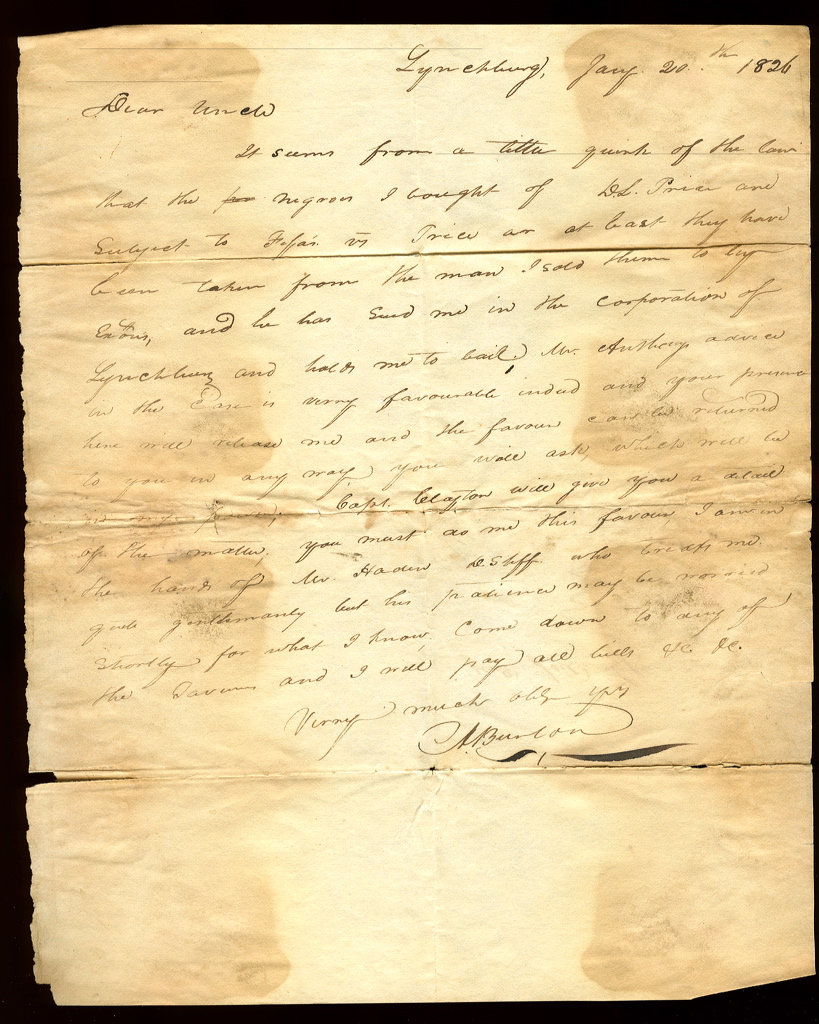 Lynchburg, Jany. 20.th 1826
Dear Uncle
It seems from a little quirk of the law
that the negroes I bought of D.L. Price are
Subject to Fi.fas. vs Price or at least they have
been taken from the man I sold them to by
Exōns, and he has Sued me in the corporation of
Lynchburg and holds me to bail. Mr. Anthonys advice
in the Case is verry favourable indeed and your presence
here will release me and the favour can be returned
to you in any way, you will ask, which will be
in my power; Capt. Clayton will give you a detail
of the matter, you must do me this favour, I am in
the hands of Mr. Haden D. Shff. who treats me
quite gentlemanly but his patience may be worried
Shortly for what I know. Come down to any of
the Taverns and I will pay all bills &c. &c.
Verry much oblg yrs
A. Burton